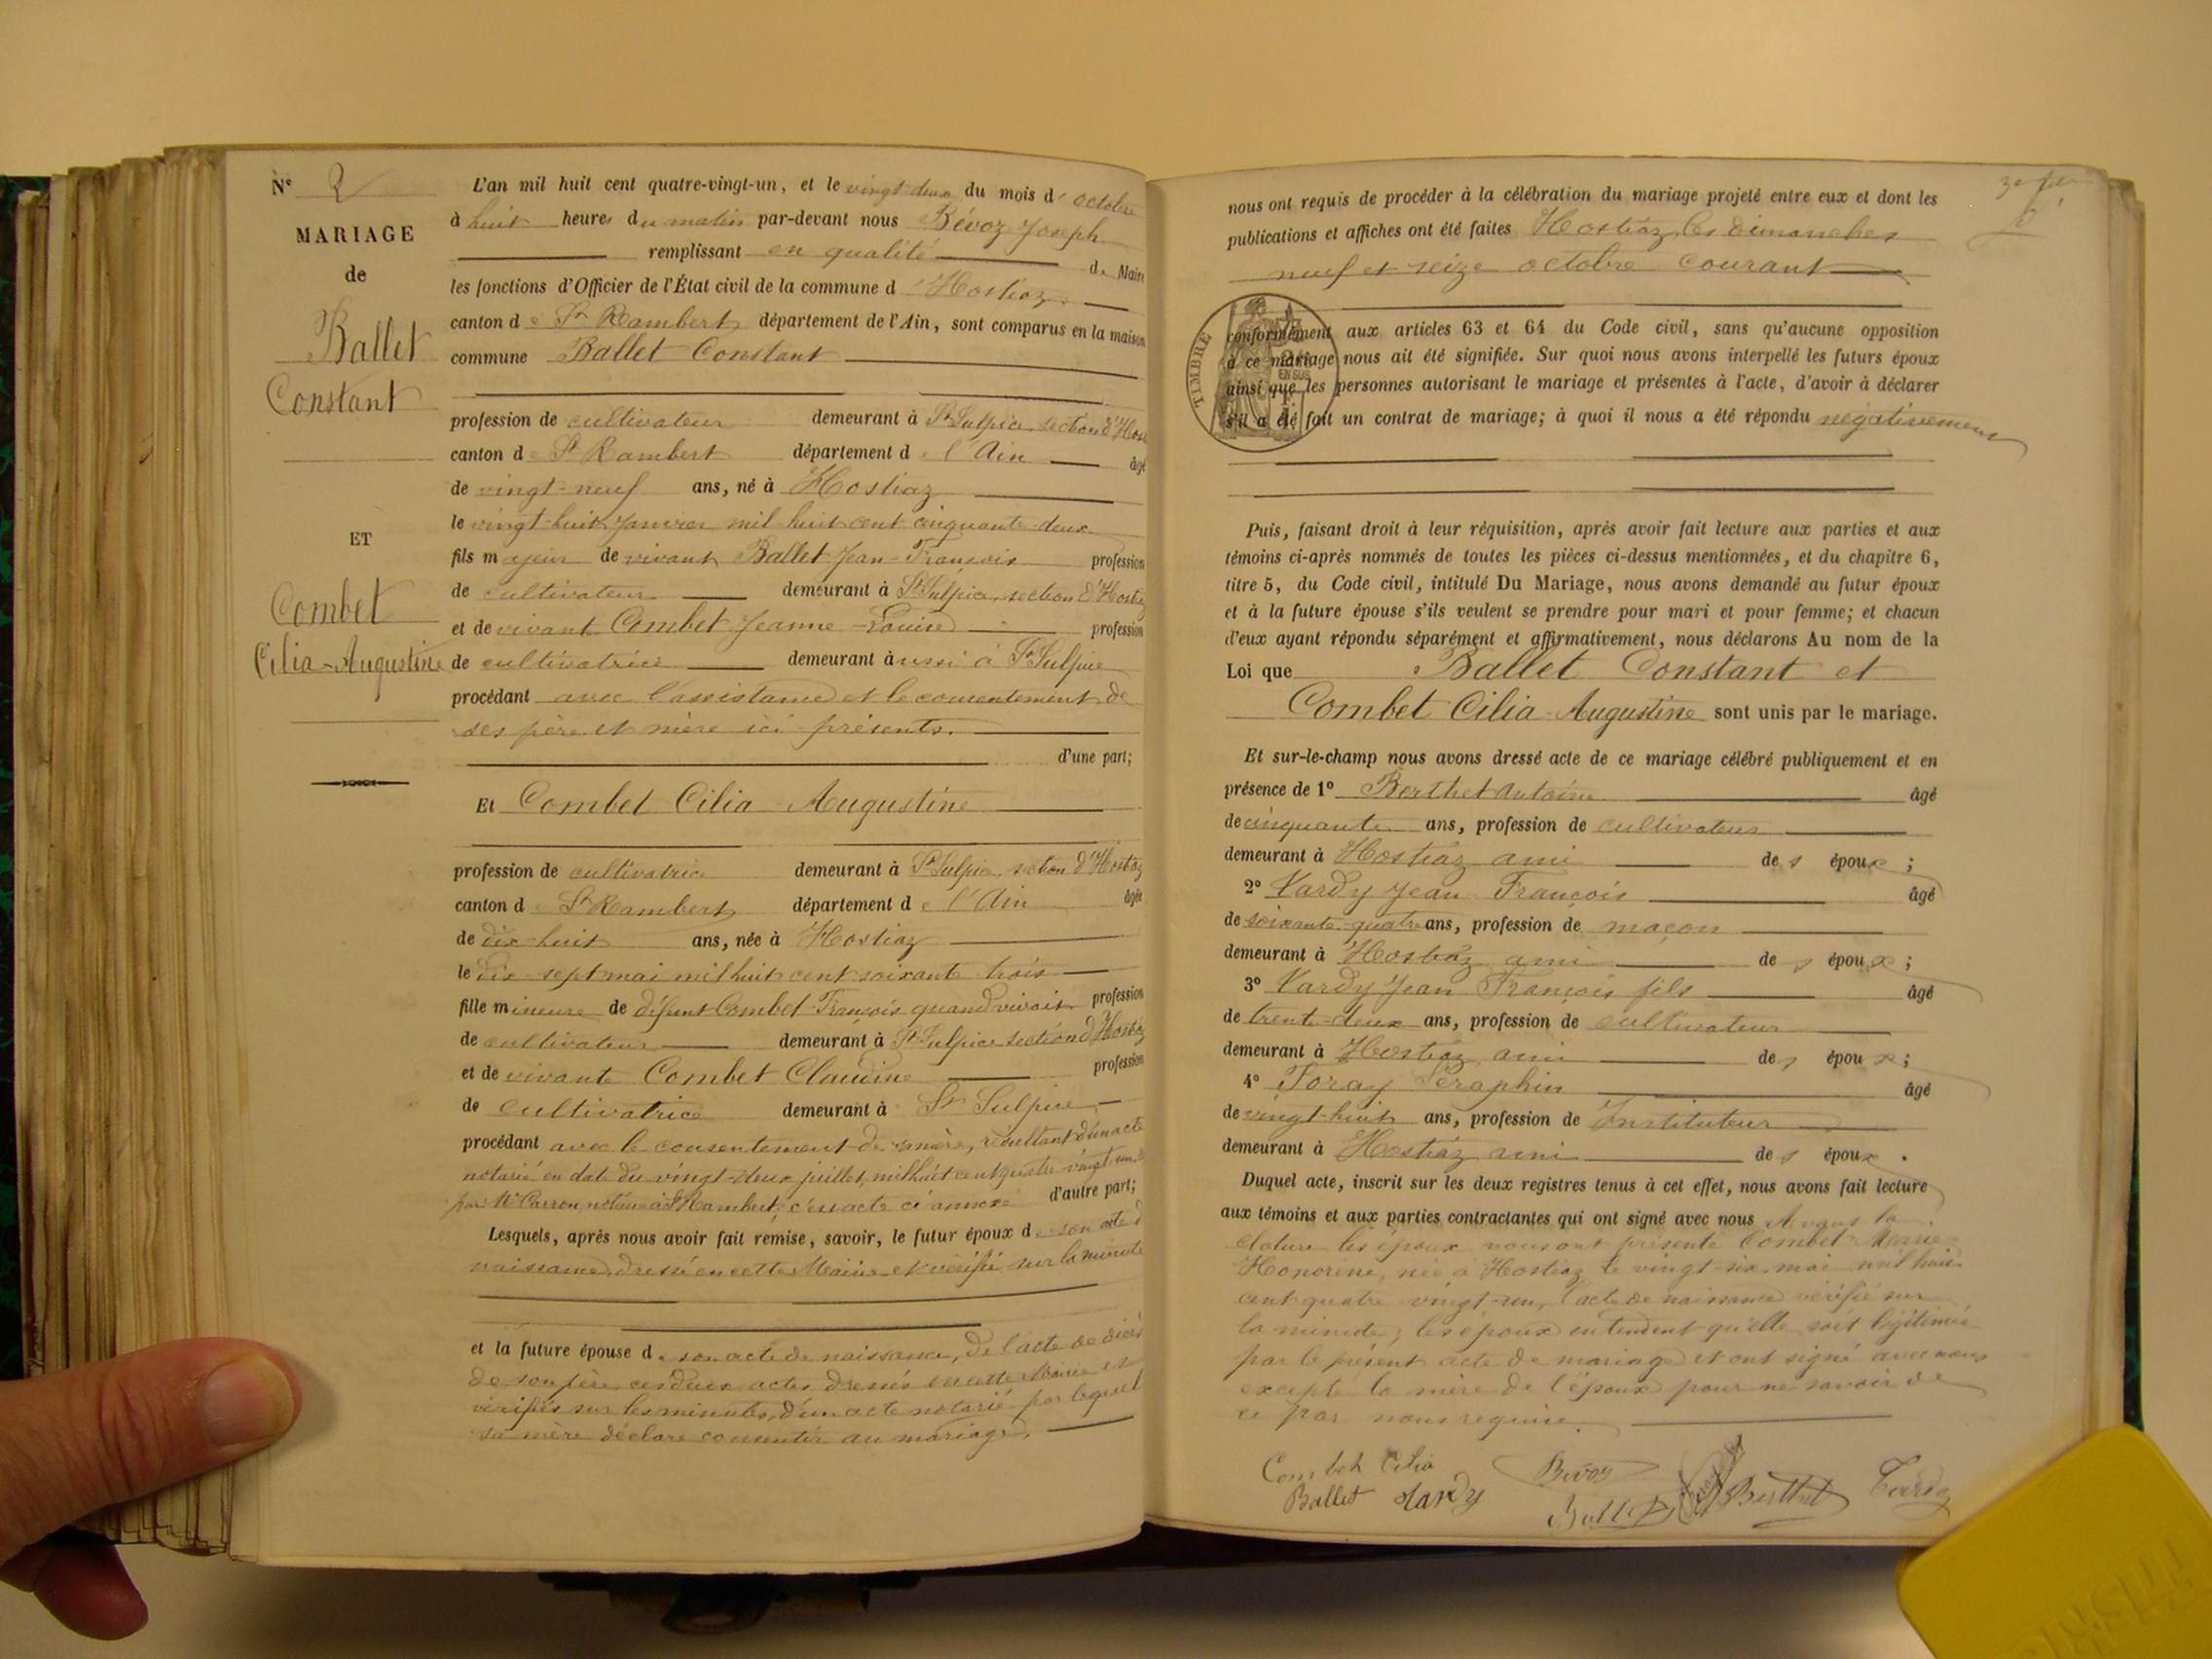 N° 2
MARIAGE
de
Ballet
Constant
ET
Combet
Cilia-Augustine
L'an mil huit cent quatre-vingt-un, et le vingt-deux du mois d'octobre
à huit heures du matin par-devant nous Bévoz Joseph
remplissant en qualité de Maire
les fonctions d'Officier de l'État civil de la commune d'Hostiaz
canton de St Rambert département de l'Ain, sont comparus en la maison
commune Ballet Constant
profession de cultivateur demeurant à St Sulpice, section d'Host
canton de St Rambert département de l'Ain âgé
de vingt-neuf ans, né à Hostiaz
le vingt-huit Janvier mil huit cent cinquante-deux
fils majeur de vivant Ballet Jean-François profession
de cultivateur demeurant à St Sulpice, section d'Hostiaz
et de vivant Combet Jeanne-Louise profession
de cultivatrice demeurant aussi à St Sulpice
procédant avec l'assistance et le consentement de
ses père et mère ici présents.
d'une part;
Et Combet Cilia Augustine
profession de cultivatrice demeurant à St Sulpice, section d'Hostiaz
canton de St Rambert département de l'Ain âgée
de dix-huit ans, née à Hostiaz
le dix-sept mai mil huit cent soixante trois
fille mineure de défunt Combet François quand vivait profession
de cultivateur demeurant à St Sulpice section d'Hostiaz
et de vivante Combet Claudine profession
de cultivatrice demeurant à St Sulpice
procédant avec le consentement de sa mère, résultant d'un acte
notarié en date du vingt-deux juillet, mil huit cent quatre vingt un
par Me Carron, notaire à St Rambert, c'est acte ci annexé d'autre part;
Lesquels, après nous avoir fait remise, savoir, le futur époux de son acte d
naissance, dressé en cette Mairie et vérifié sur la minute
et la future épouse de son acte de naissance, de l'acte de décès
de son père, ces deux actes dressés en cette Mairie et
vérifiés sur les minutes, d'un acte notarié par lequel
sa mère déclare consentir au mariage.
nous ont requis de procéder à la célébration du mariage projeté entre eux et dont les
publications et affiches ont été faites Hostiaz, les dimanches
neuf et seize octobre courant
TIMBRE
EN SUS
conformément aux articles 63 et 64 du Code civil, sans qu'aucune opposition
à ce mariage nous ait été signifiée. Sur quoi nous avons interpellé les futurs époux
ainsi que les personnes autorisant le mariage et présentes à l'acte, d'avoir à déclarer
s'il a été fait un contrat de mariage; à quoi il nous a été répondu négativement
Puis, faisant droit à leur réquisition, après avoir fait lecture aux parties et aux
témoins ci-après nommés de toutes les pièces ci-dessus mentionnées, et du chapitre 6,
titre 5, du Code civil, intitulé Du Mariage, nous avons demandé au futur époux
et à la future épouse s'ils veulent se prendre pour mari et pour femme; et chacun
d'eux ayant répondu séparément et affirmativement, nous déclarons Au nom de la
Loi que Ballet Constant et
Combet Cilia-Augustine sont unis par le mariage.
Et sur-le-champ nous avons dressé acte de ce mariage célébré publiquement et en
présence de 1° Berthet Antoine âgé
de cinquante ans, profession de cultivateur
demeurant à Hostiaz ami des époux;
2° Vardy Jean François âgé
de soixante-quatre ans, profession de maçon
demeurant à Hostiaz ami des époux;
3° Vardy Jean François fils âgé
de trente-deux ans, profession de cultivateur
demeurant à Hostiaz ami des époux;
4° Foray Séraphin âgé
de vingt-huit ans, profession de Instituteur
demeurant à Hostiaz ami des époux.
Duquel acte, inscrit sur les deux registres tenus à cet effet, nous avons fait lecture
aux témoins et aux parties contractantes qui ont signé avec nous Avant la
cloture les époux nous ont présenté Combet Marie
Honorine, née à Hostiaz le vingt-six mai mil huit
cent quatre vingt-un, l'acte de naissance vérifié sur
la minute; les époux entendent qu'elle soit légitimée
par le présent acte de mariage et ont signé avec nous
excepté la mère de l'époux pour ne savoir de
ce par nous requise.
Combet Cilia
Bévoz
Ballet
Vardy
Ballet
Berthet